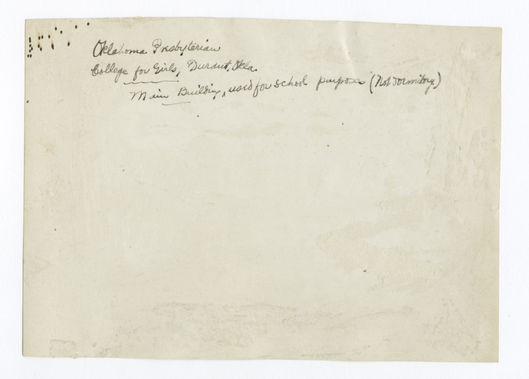 Oklahoma Presbyterian
College for Girls, Durant, Okla.
Main Building, used for School purposes (Not Dormitory)